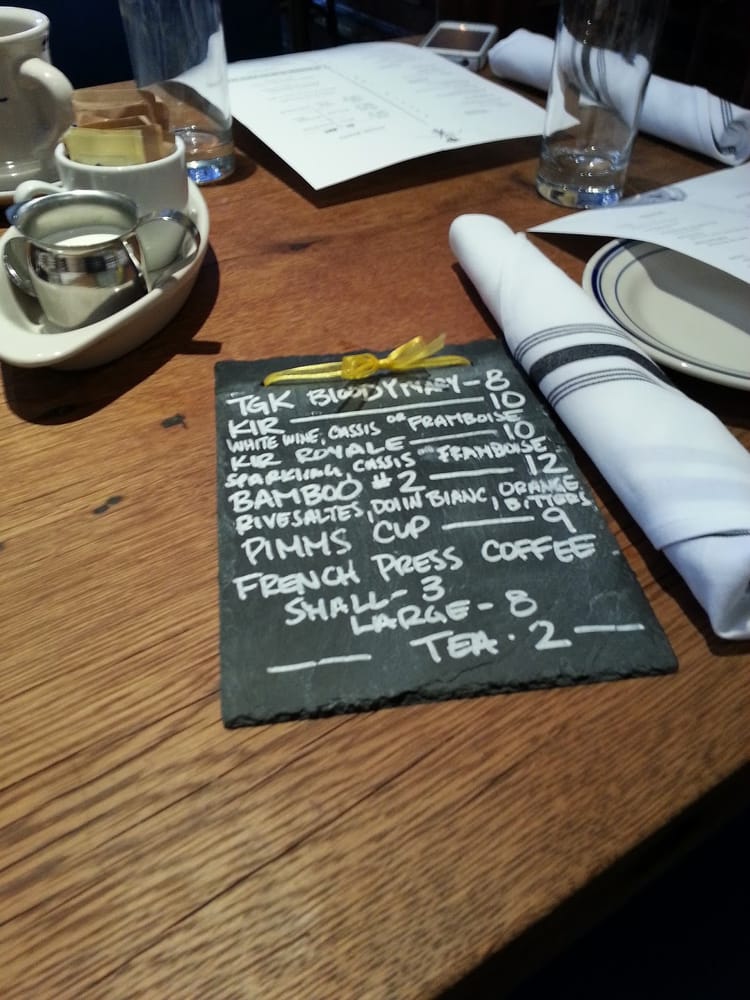 TGK BLOODY MARY - 8
KIR — 10
WHITE WINE, CASSIS OR FRAMBOISE
KIR ROYALE — 10
SPARKLING, CASSIS OR FRAMBOISE
BAMBOO #2 — 12
RIVESALTES, DOLIN BIANC, ORANGE BITTERS
PIMMS CUP — 9
FRENCH PRESS COFFEE
SMALL - 3
LARGE - 8
TEA · 2